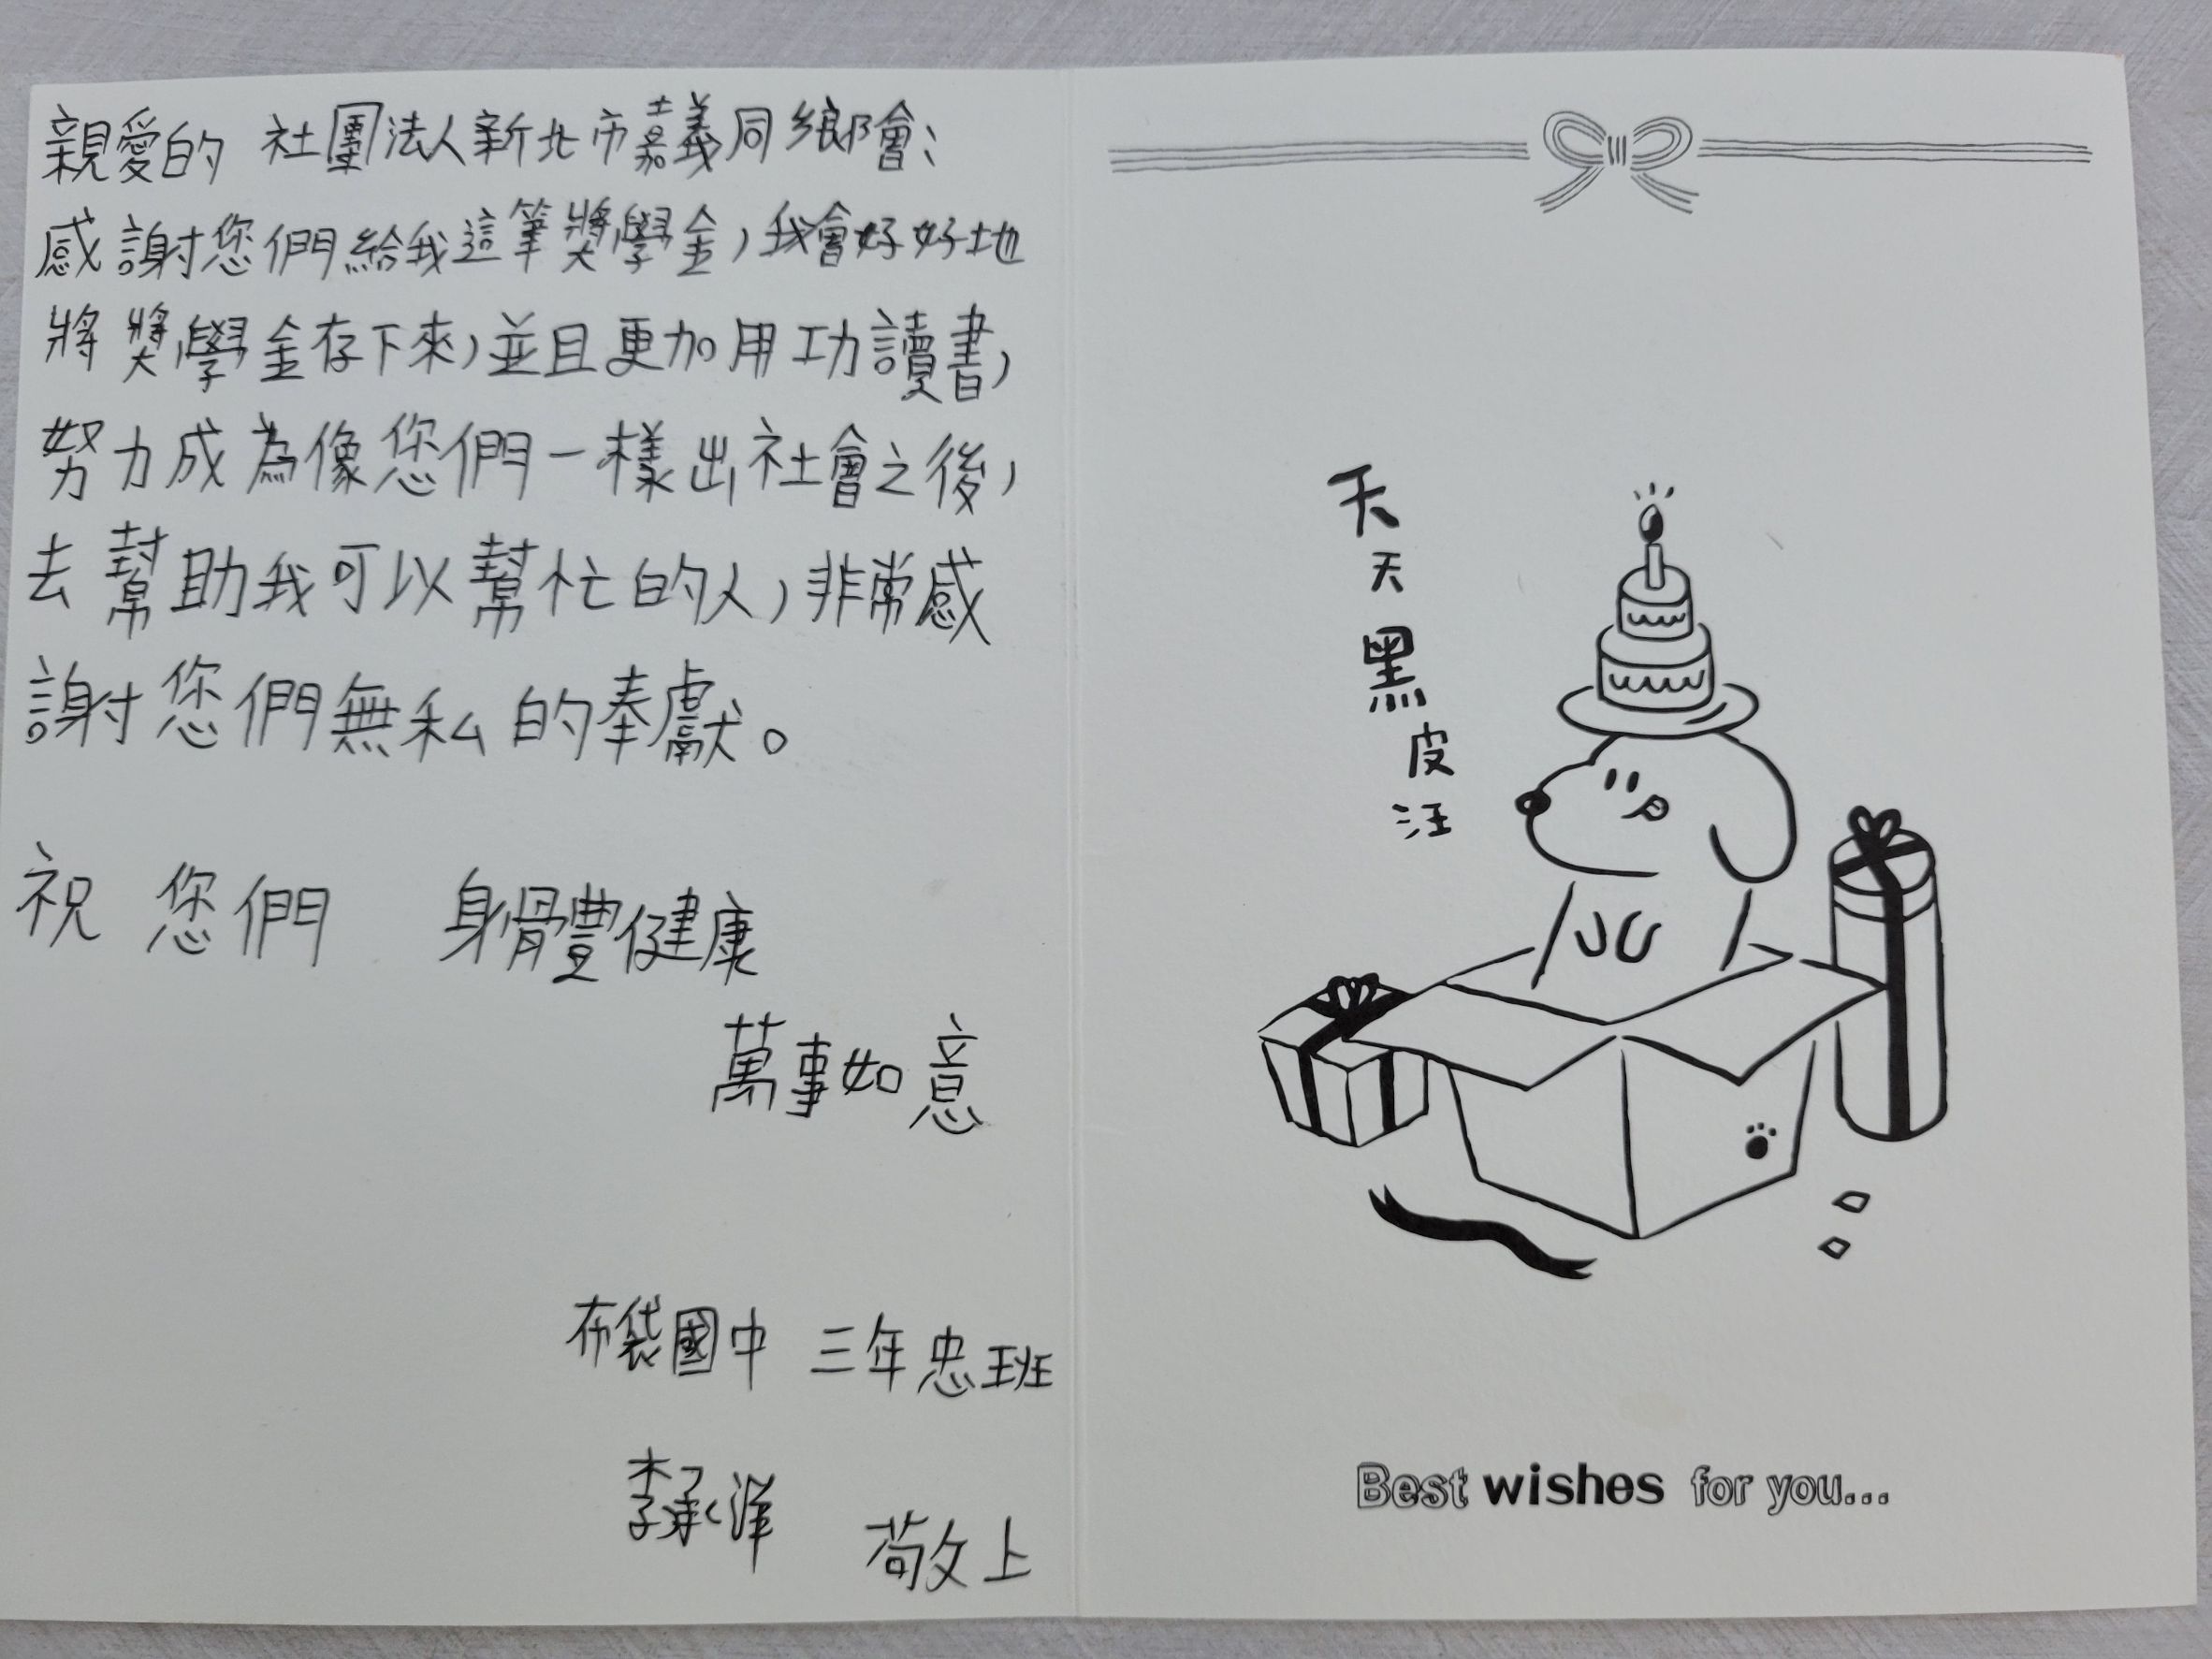 親愛的 社團法人新北市嘉義同鄉會：
感謝您們給我這筆獎學金，我會好好地
將獎學金存下來，並且更加用功讀書，
努力成為像您們一樣出社會之後，
去幫助我可以幫忙的人，非常感
謝您們無私的奉獻。
祝 您們 身體健康
萬事如意
布袋國中 三年忠班
李承洋
敬上
天天黑皮汪
Best wishes for you...